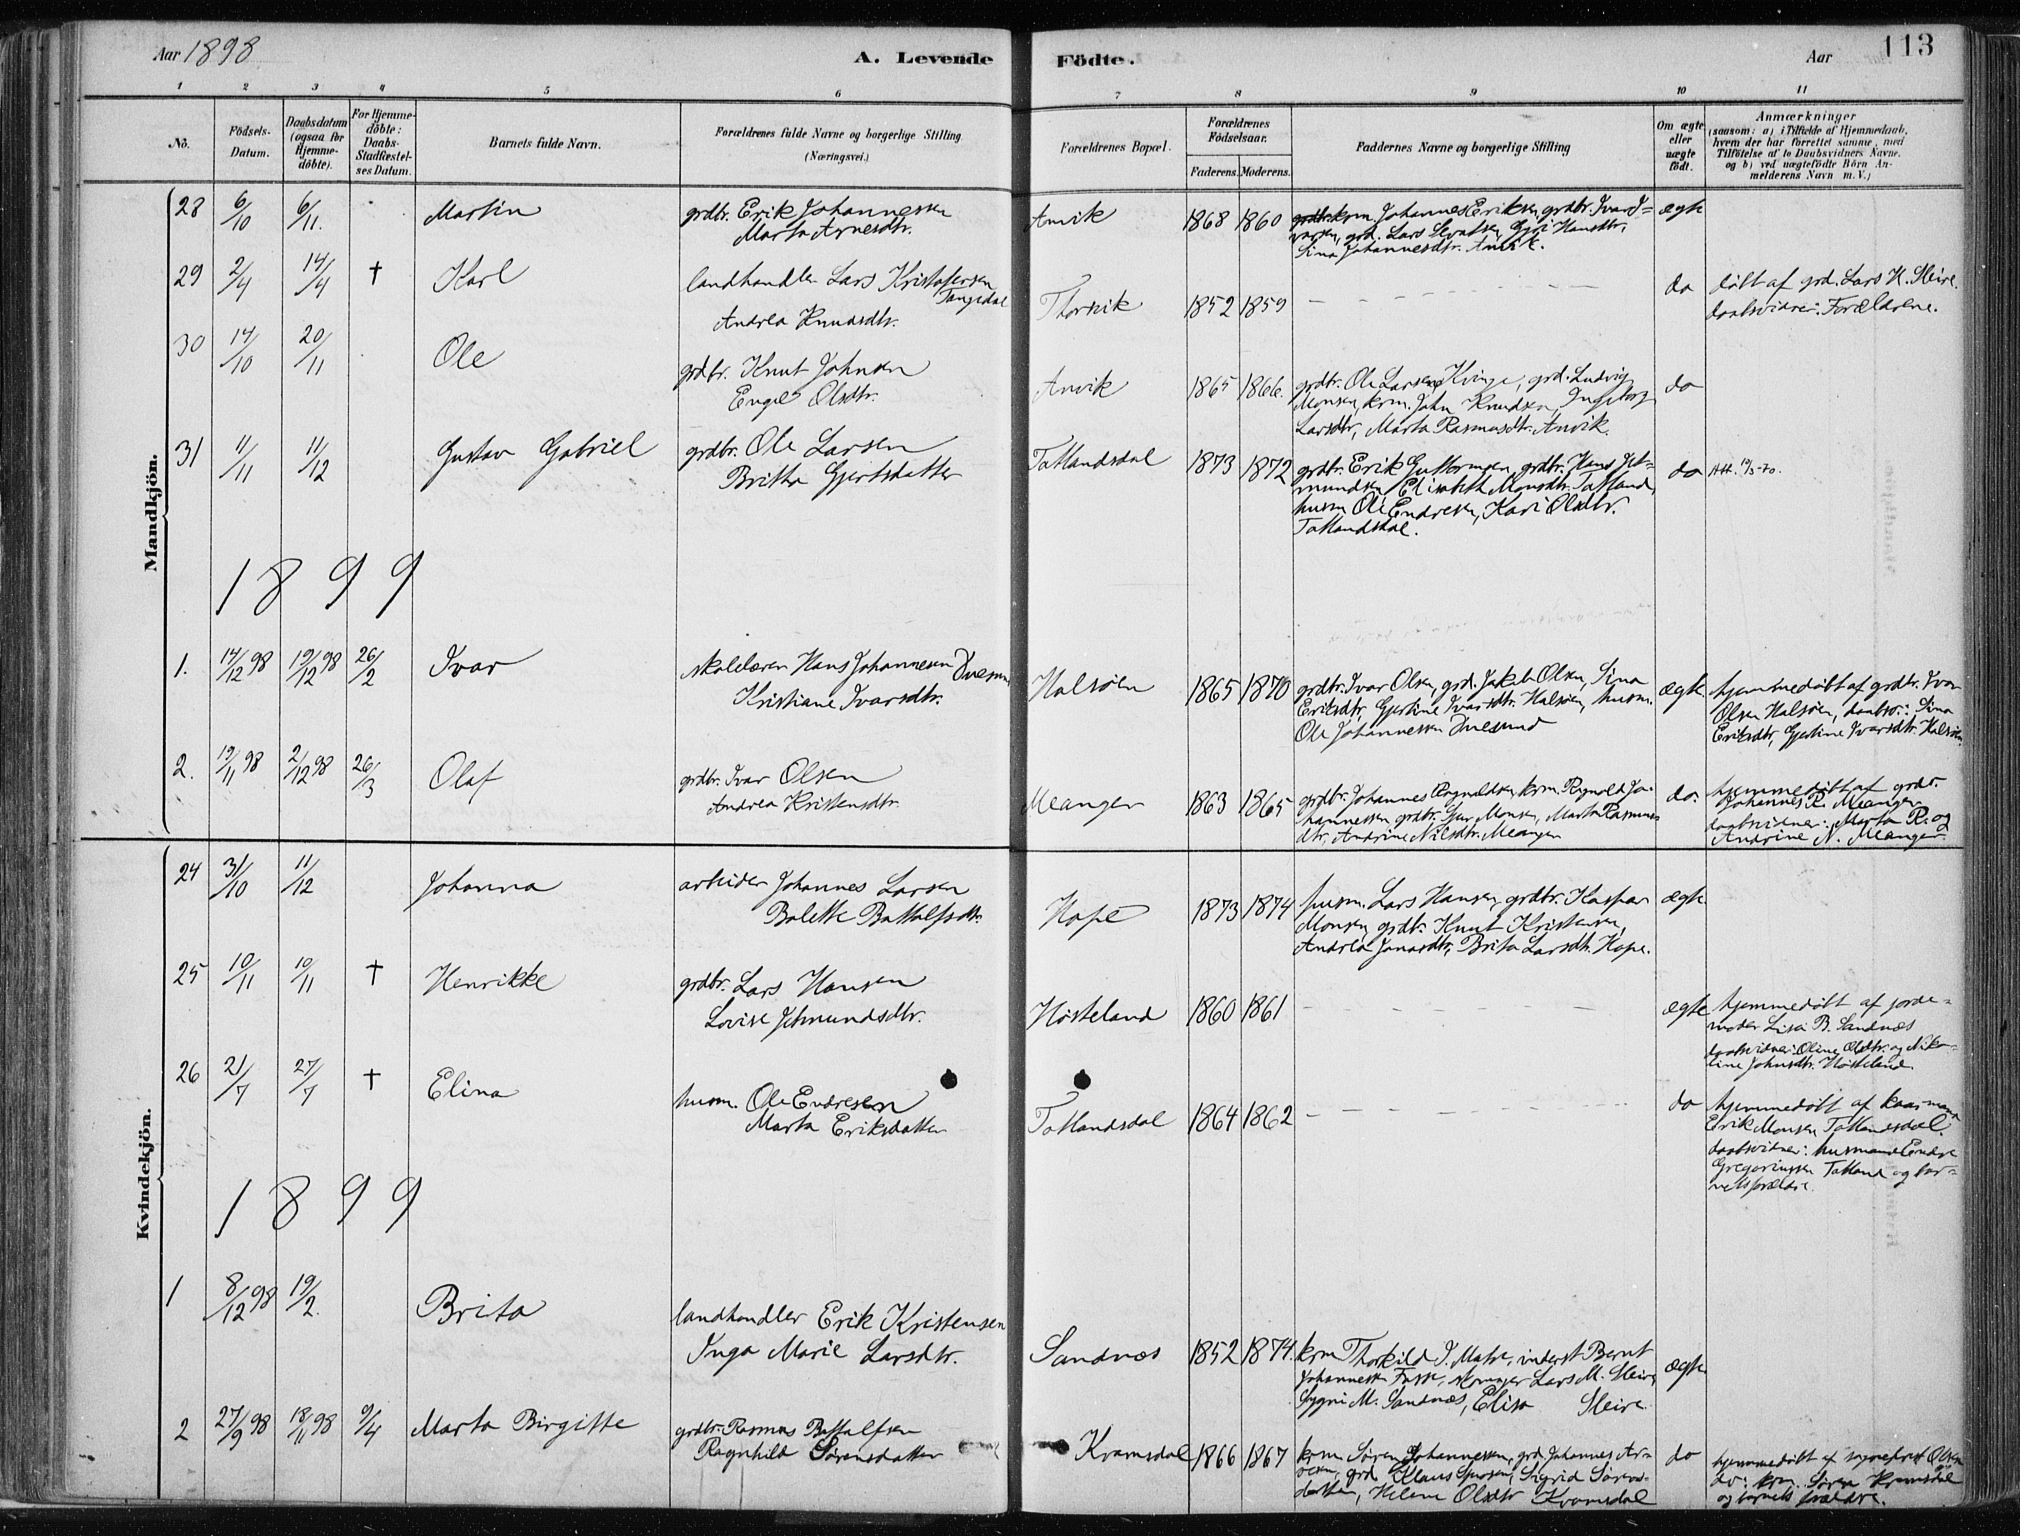 Aar 1898
A. Levende
Födte.
Aar
113
1 2 3 4 5 6 7 8 9 10 11
No.
Födsels-Datum.
Daabsdatum (ogsaa for Hjemme-döbte).
For Hjemme-döbte: Daabs-Stadfæstel-ses Datum.
Barnets fulde Navn.
Forældrenes fulde Navne og borgerlige Stilling
(Næringsvei.)
Forældrenes Bopæl.
Forældrenes Födselsaar.
Faderens. Moderens.
Faddernes Navne og borgerlige Stilling
Om ægte eller uægte födt.
Anmærkninger
(saasom: a) i Tilfælde af Hjemmedaab,
hvem der har forrettet samme, med
Tilföielse af to Daabsvidners Navne,
og b) ved uægtefödte Börn An-
melderens Navn m. V.)
Mandkjön.
28 6/10 6/11. Martin
grdbr. Erik Johannessen
Marta Arnesdtr.
Anvik 1868 1860
krm. Johannes Eriksen, grdbr. Ivar I=
varsen, grd. Lars Sjvatsen, Gjøri Hansdtr,
Sina Johannesdtr. Anvik.
ægte
29 2/4 14/4 † Karl
landhandler Lars Kristofersen
Tangedal
Andrea Knudsdtr.
Thorvik 1852 1859
do
døbt af grd. Lars K. Sleire.
daabsvidner: Forældrene.
30 14/10 20/11 Ole
grdbr. Knut Johnsen
Engel Olsdtr.
Anvik 1865 1866.
grdbr. Ole Larsen Kvinge, grd. Ludvig
Monsen, krm. John Knudsen, Ingeborg
Larsdtr, Marta Rasmusdtr. Anvik.
do
31 11/11 11/12 Gustav Gabriel
grdbr. Ole Larsen
Britha Gjertsdatter
Totlandsdal 1873 1872
grdbr. Erik Guttormsen, grdbr. Hans Jet=
mundsen, Elisabeth Monsdtr. Totland,
husm Ole Endresen, Kari Olsdtr.
Totlandsdal.
do
Att. 19/3-70.
1899
1. 14/12 98 19/12 98 26/2 Ivar
skolelærer Hans Johannesen Duesund
Kristiane Ivarsdtr.
Halsøen 1865 1870
grdbr. Ivar Olsen, grd. Jakob Olsen, Sina
Eriksdtr, Gjertine Ivarsdtr. Halsøen, husm.
Ole Johannessen Duesund
ægte
hjemmedøbt af grdbr. Ivar
Olsen Halsøen, daabsv.: Sina
Eriksdtr, Gjertine Ivarsdtr. Halsøen.
2. 19/11 98 2/12 98 26/3 Olaf
grdbr. Ivar Olsen
Andrea Kristensdtr.
Meanger 1863 1865
grdbr. Johannes Ragnaldsen, krm. Ragnald Jo-
hannessen, grdbr. Sjur Monsen, Marta Rasmus
dtr, Andrine Nilsdtr. Meanger
do.
hjemmedøbt af grdbr.
Johannes R. Meanger
daabsvidner: Marta R. og
Andrine N. Meanger.
Kvindekjön.
24 31/10 11/12 Johanna
arbeider Johannes Larsen
Bolette Battolfsdtr.
Hope 1873 1874
husm. Lars Hansen, grdbr. Kaspar
Monsen, grdbr. Knut Kristensen,
Andrea Jonasdtr, Brita Larsdtr. Hope.
ægte
25 10/11 10/11 † Henrikke
grdbr. Lars Hansen
Lovise Jetmundsdtr.
Høsteland 1860 1861
ægte
hjemmedøbt af jorde=
moder Lisa B. Sandnæs
daabsvidner: Oline Olsdtr. og Niko=
line Johnsdtr. Høsteland.
26 21/7 27/7 † Elina
husm. Ole Endresen
Marta Eriksdatter
Totlandsdal 1864 1862
do
hjemmedøbt af kaarmand
Erik Monsen Totlandsdal.
daabsvidner: husmand Endre
Gregoriussen Totland og bar=
nets forældre.
1899
1 8/12 98 19/2. Brita
landhandler Erik Kristensen
Inga Marie Larsdtr.
Sandnæs 1852 1874.
krm Thorkild J. Matre, inderst Bernt
Johannessen Fusse, Lars M. Sleire,
Sygni M. Sandnæs, Elisa Sleire.
ægte
2 27/9 98 18/11 98 9/4 Marta Birgitte
grdbr. Rasmus Battolfsen
Ragnhild Sørensdatter
Kvamsdal 1866 1867
krm Søren Johannessen, grd. Johannes Ar-
nesen, grd Klaus Sjursen, Sigrid Sørens-
datter, Helene Olsdtr Kvamsdal
do
hjemmedøbt af sogneprest Olsen
dv: krm. Søren Kvamsdal
og barnets forældre.